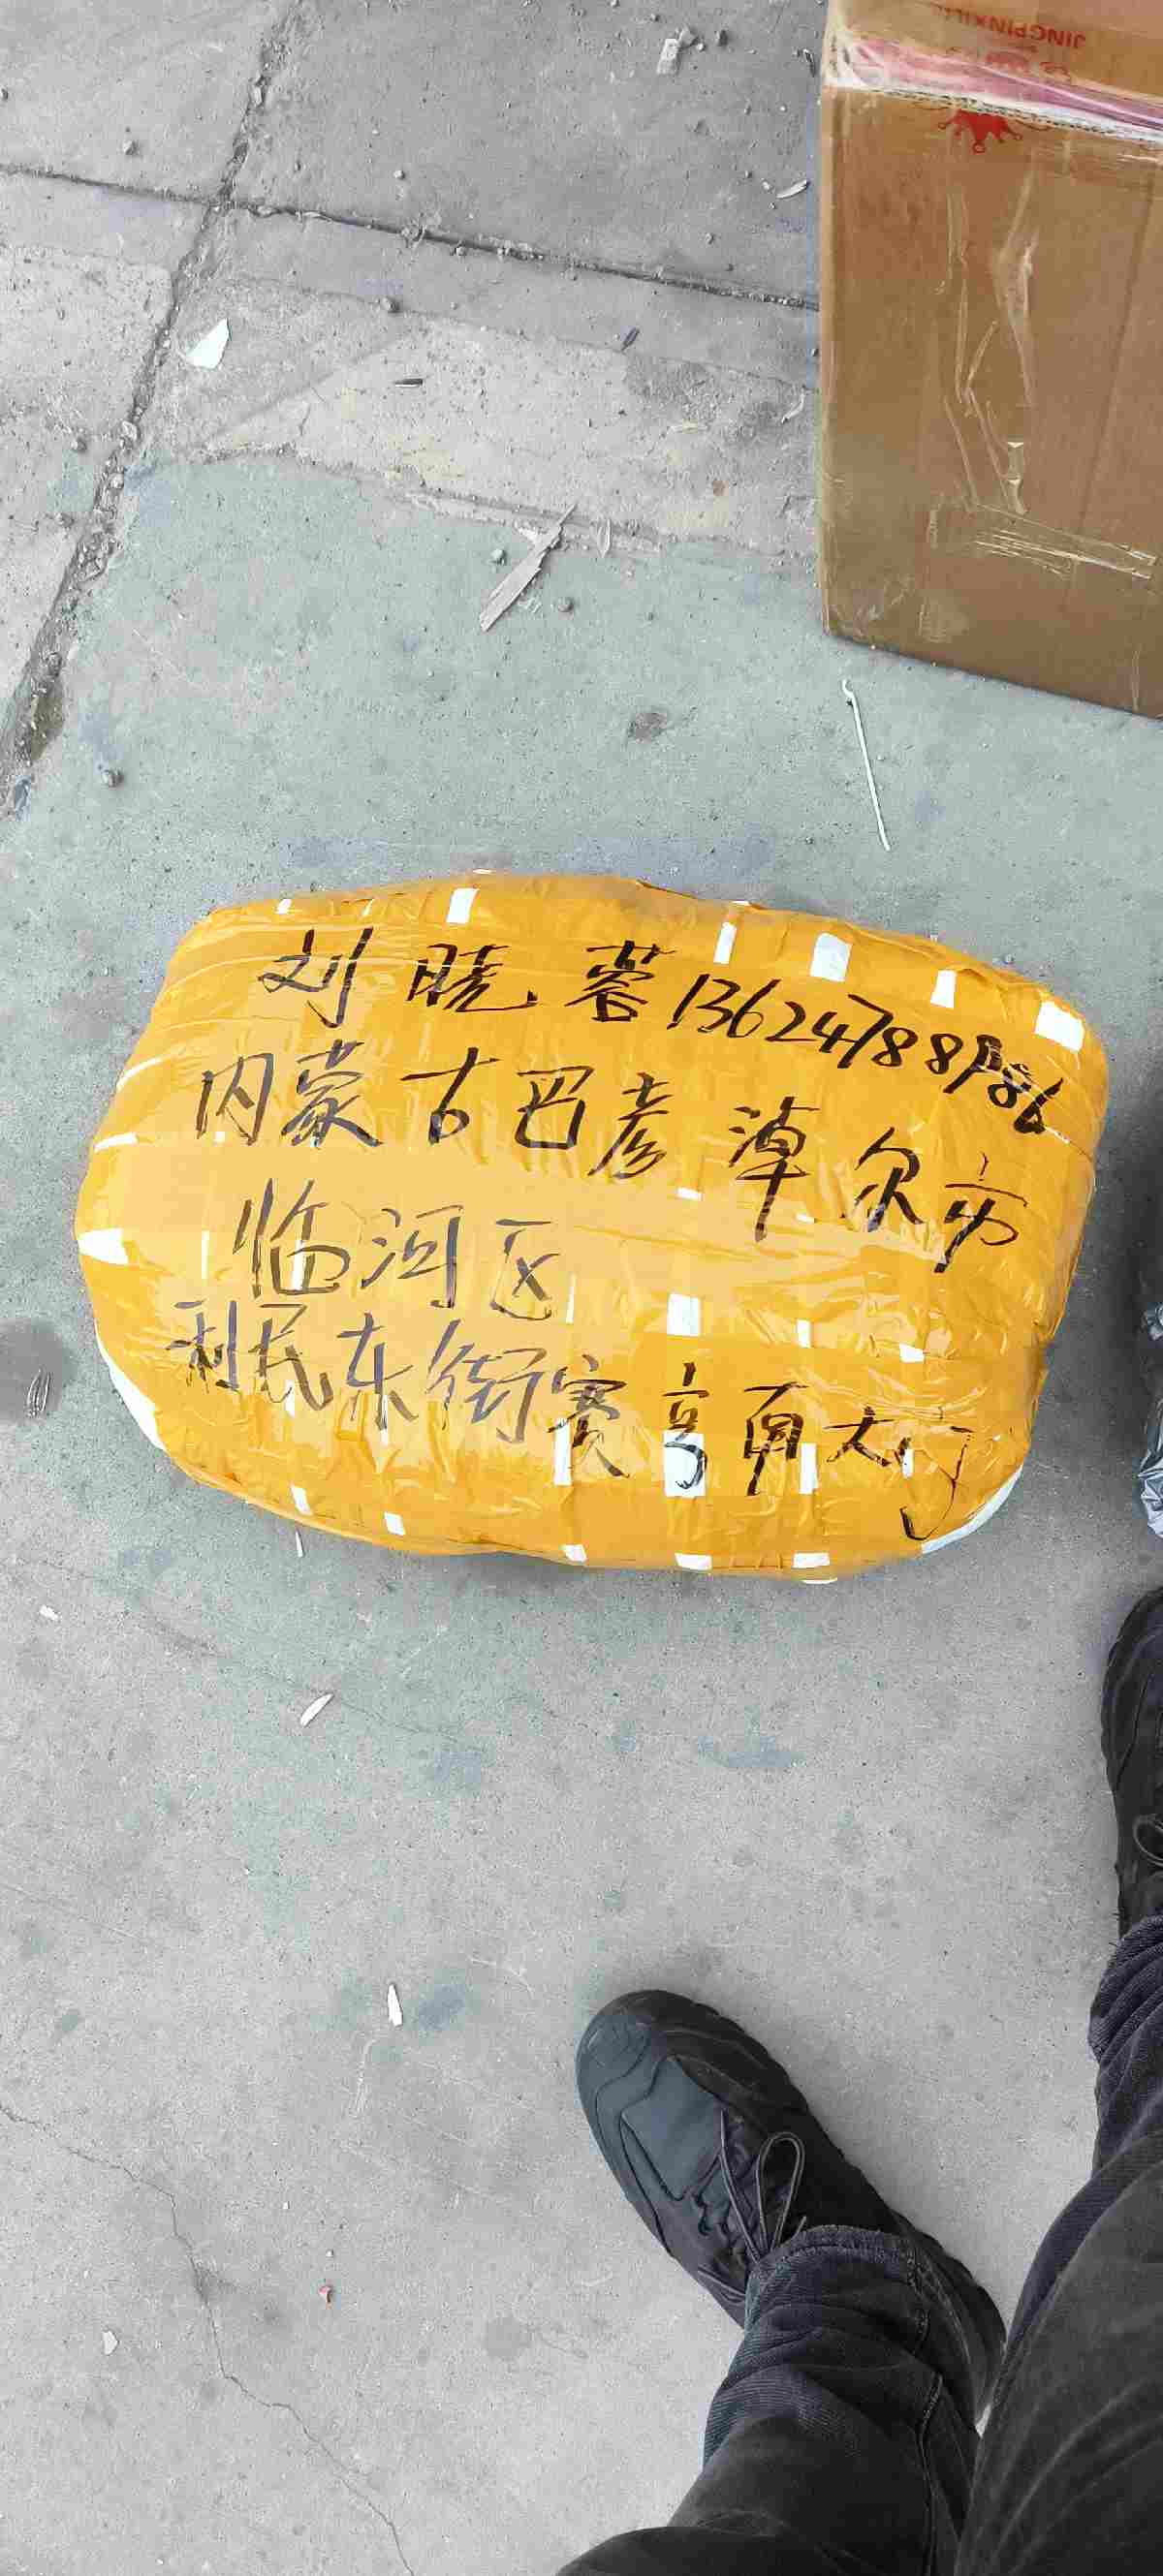 JINGPINXILIE
刘晓蓉 136247889886
内蒙古巴彦淖尔市
临河区
利民东街赛亨南大门